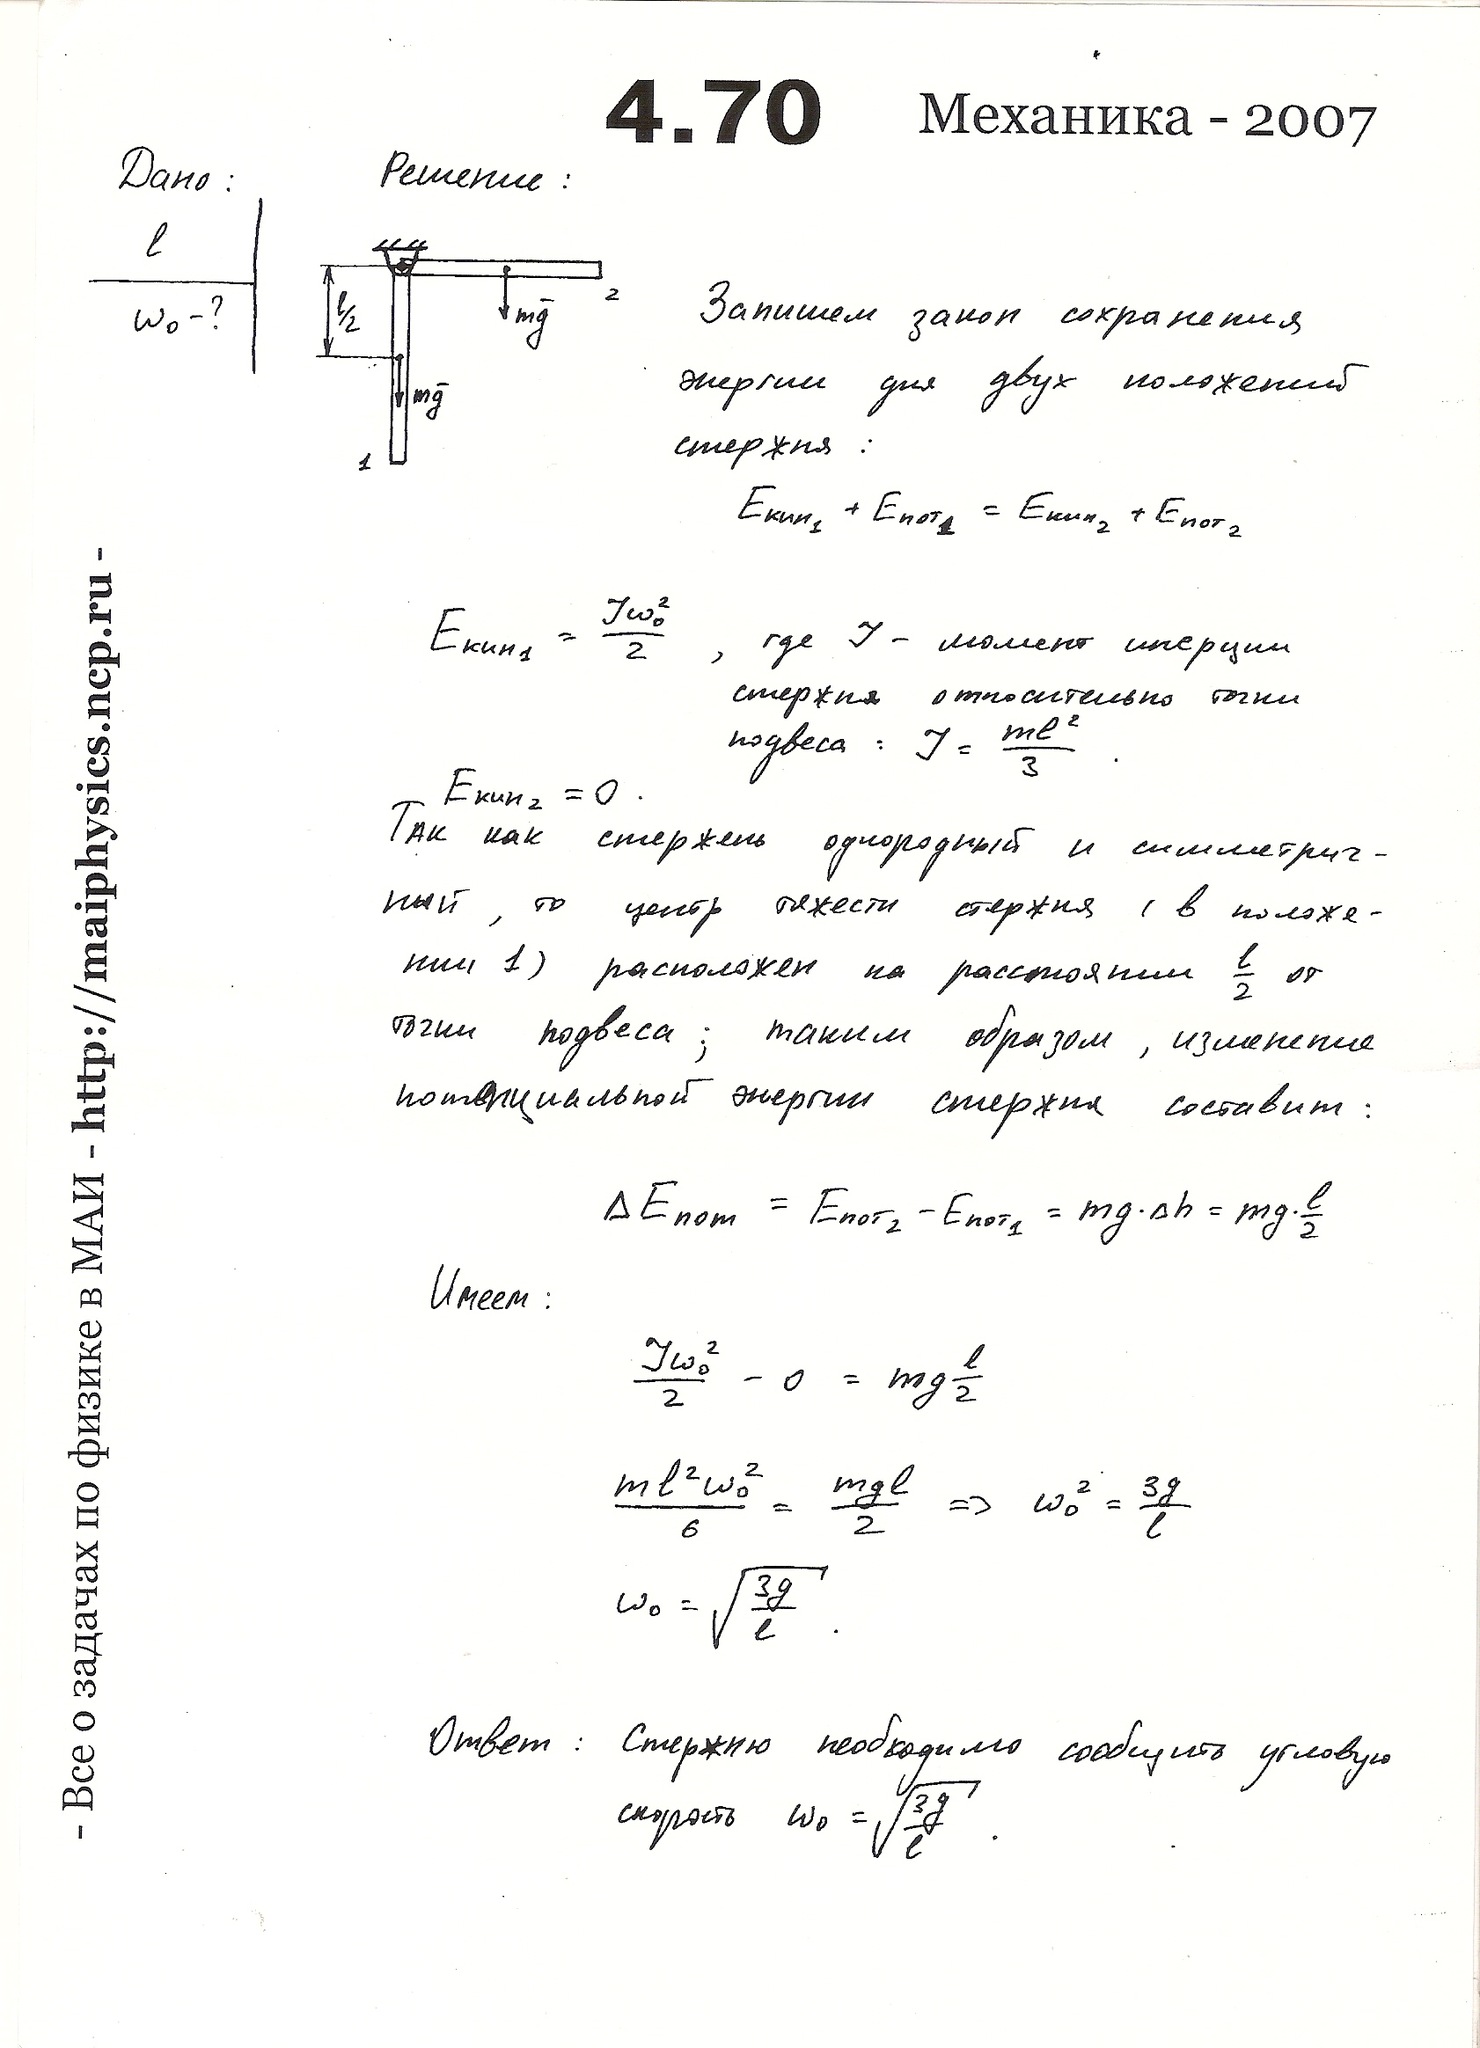 4.70 Механика - 2007
Дано: Решение:
l
ω₀ - ?
l/2
mg̅
2
mg̅
1
Запишем закон сохранения
энергии для двух положений
стержня:
Eкин₁ + Eпот₁ = Eкин₂ + Eпот₂
Eкин₁ = Jω₀²/2, где J - момент инерции
стержня относительно точки
подвеса: J = ml²/3.
Eкин₂ = 0.
Так как стержень однородный и симметрич-
ный, то центр тяжести стержня (в положе-
нии 1) расположен на расстоянии l/2 от
точки подвеса; таким образом, изменение
потенциальной энергии стержня составит:
ΔEпот = Eпот₂ - Eпот₁ = mg·Δh = mg·l/2
Имеем:
Jω₀²/2 - 0 = mg l/2
ml²ω₀²/6 = mgl/2 => ω₀² = 3g/l
ω₀ = √(3g/l).
Ответ: Стержню необходимо сообщить угловую
скорость ω₀ = √(3g/l).
- Все о задачах по физике в МАИ - http://maiphysics.ncp.ru -